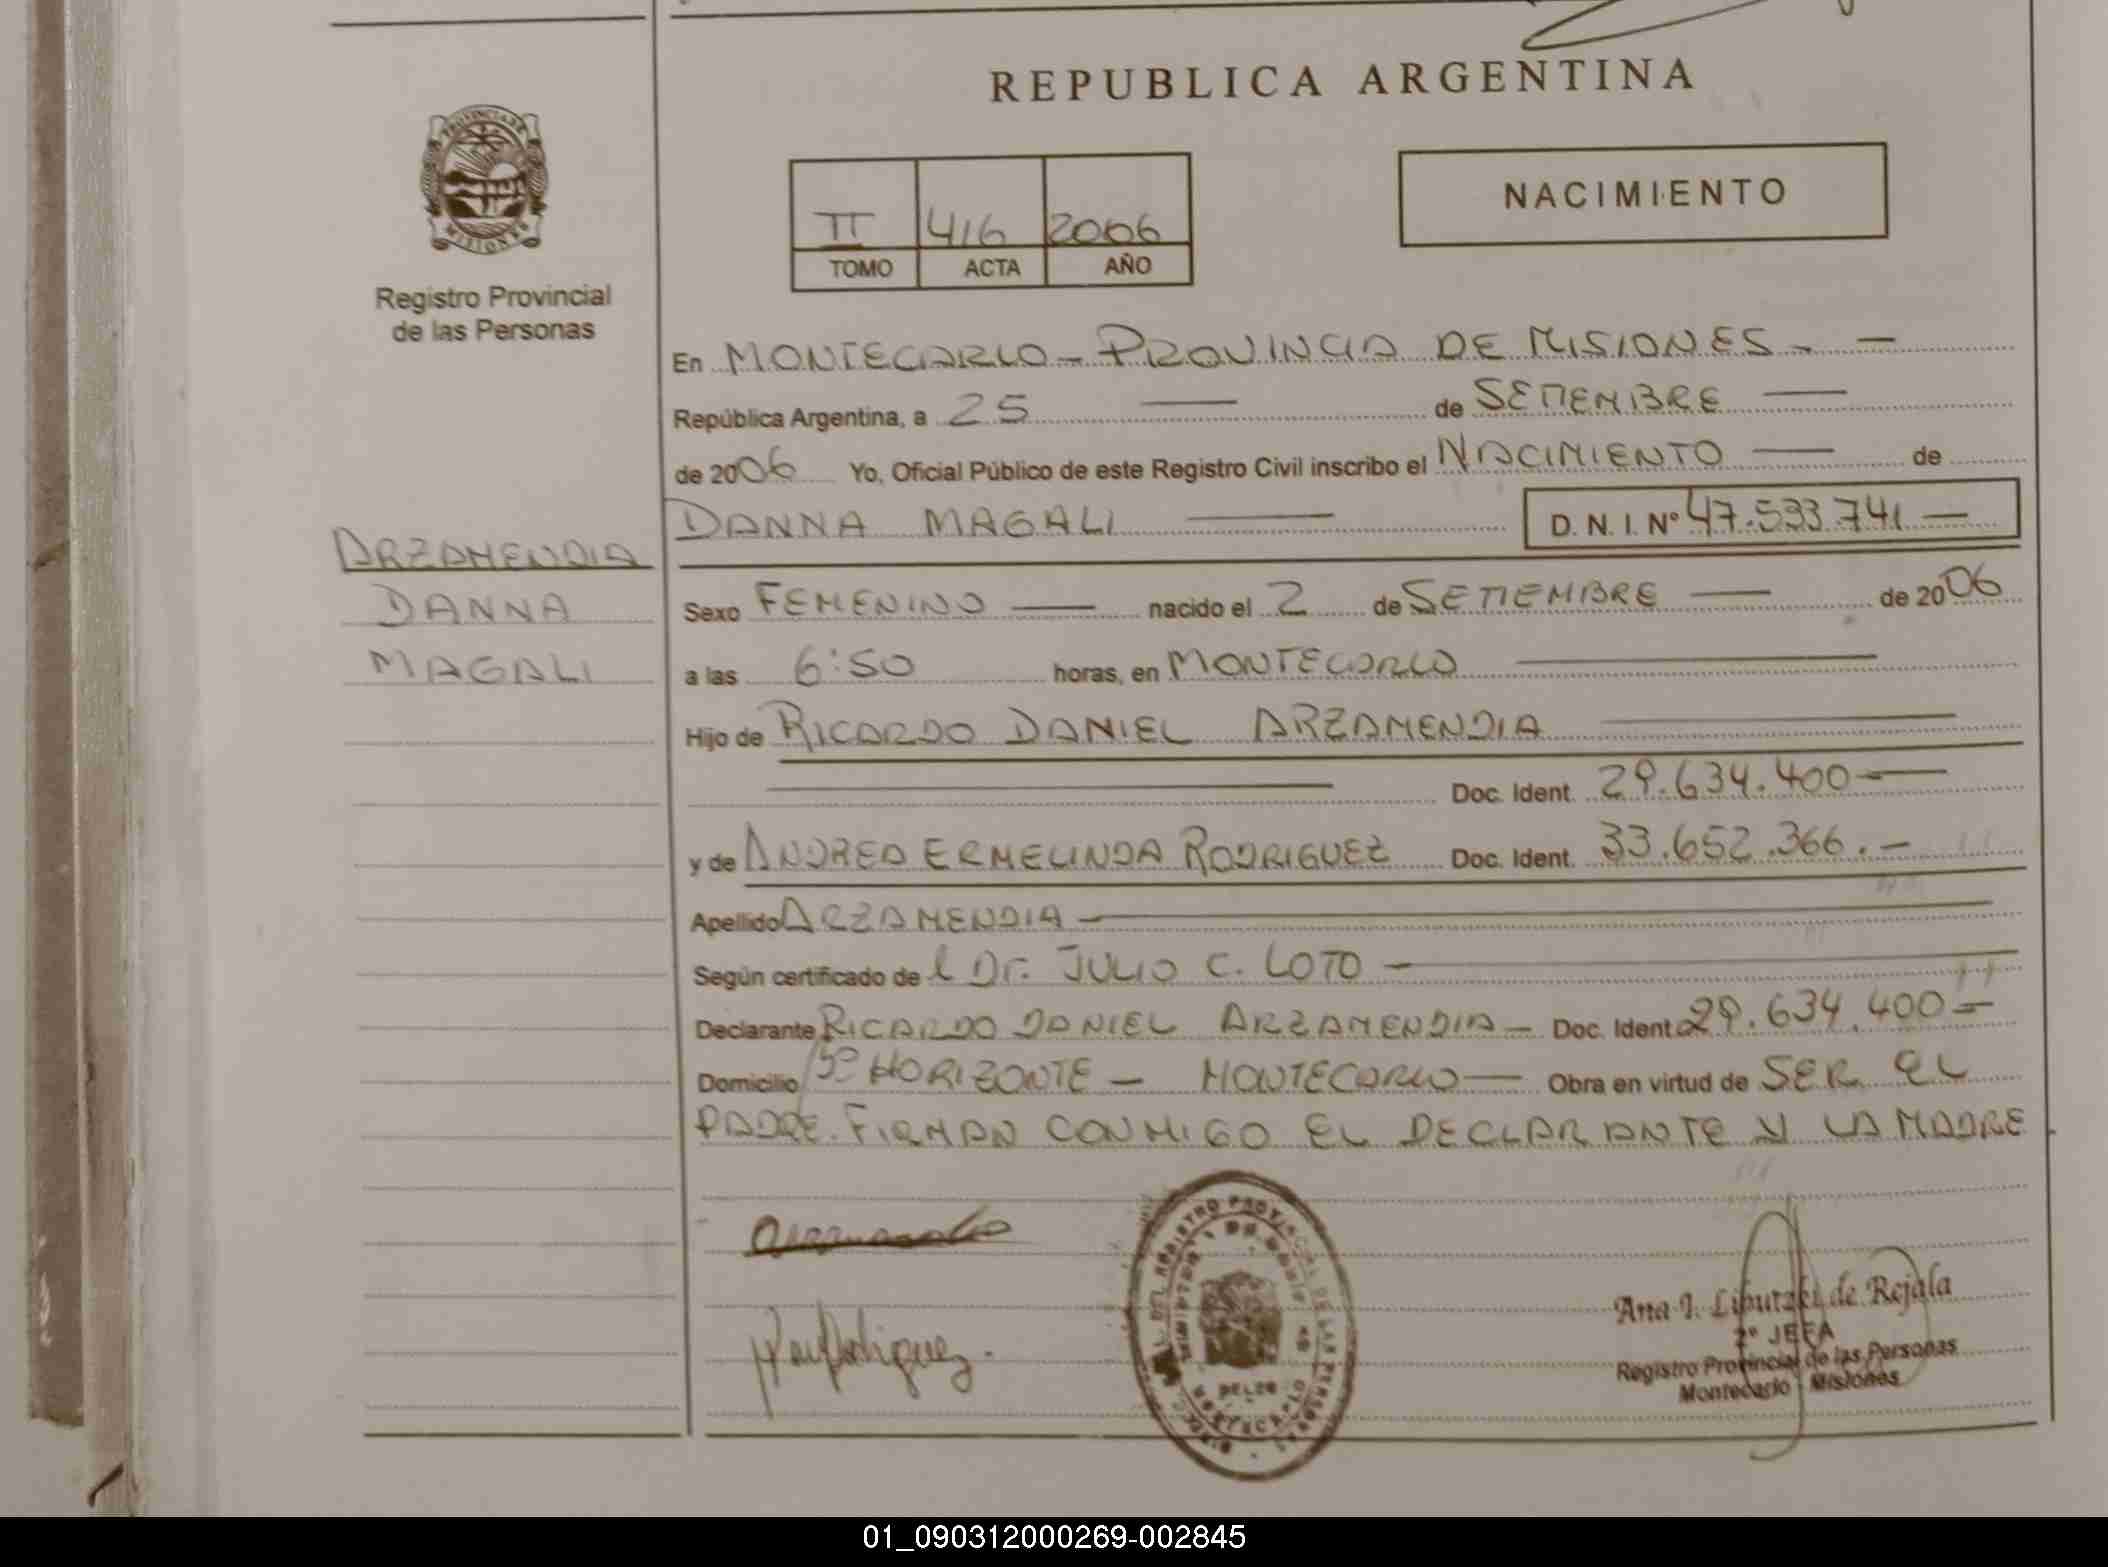 REPUBLICA ARGENTINA
PROVINCIA DE
MISIONES
Registro Provincial
de las Personas
II 416 2006
TOMO ACTA AÑO
NACIMIENTO
En MONTECARLO - PROVINCIA DE MISIONES - —
República Argentina, a 25 — de SETIEMBRE —
de 2006 Yo, Oficial Público de este Registro Civil inscribo el NACIMIENTO — de
DANNA MAGALI — D. N. I. Nº 47.533.741 —
ARZAMENDIA
DANNA
MAGALI
Sexo FEMENINO — nacido el 2 de SETIEMBRE — de 2006
a las 6:50 horas, en MONTECARLO —
Hijo de RICARDO DANIEL ARZAMENDIA —
— Doc. Ident. 29.634.400 —
y de ANDREA ERMELINDA RODRIGUEZ Doc. Ident. 33.652.366. -
Apellido ARZAMENDIA —
Según certificado de l Dr. JULIO C. LOTO —
Declarante RICARDO DANIEL ARZAMENDIA - Doc. Ident. 29.634.400 -
Domicilio Bº HORIZONTE - MONTECARLO — Obra en virtud de SER EL
PADRE. FIRMAN CONMIGO EL DECLARANTE Y LA MADRE.
Rodriguez.
REGISTRO PROVINCIAL DE LAS PERSONAS
MONTECARLO
Ana I. Liputzki de Rejala
2º JEFA
Registro Provincial de las Personas
Montecarlo - Misiones
01_090312000269-002845